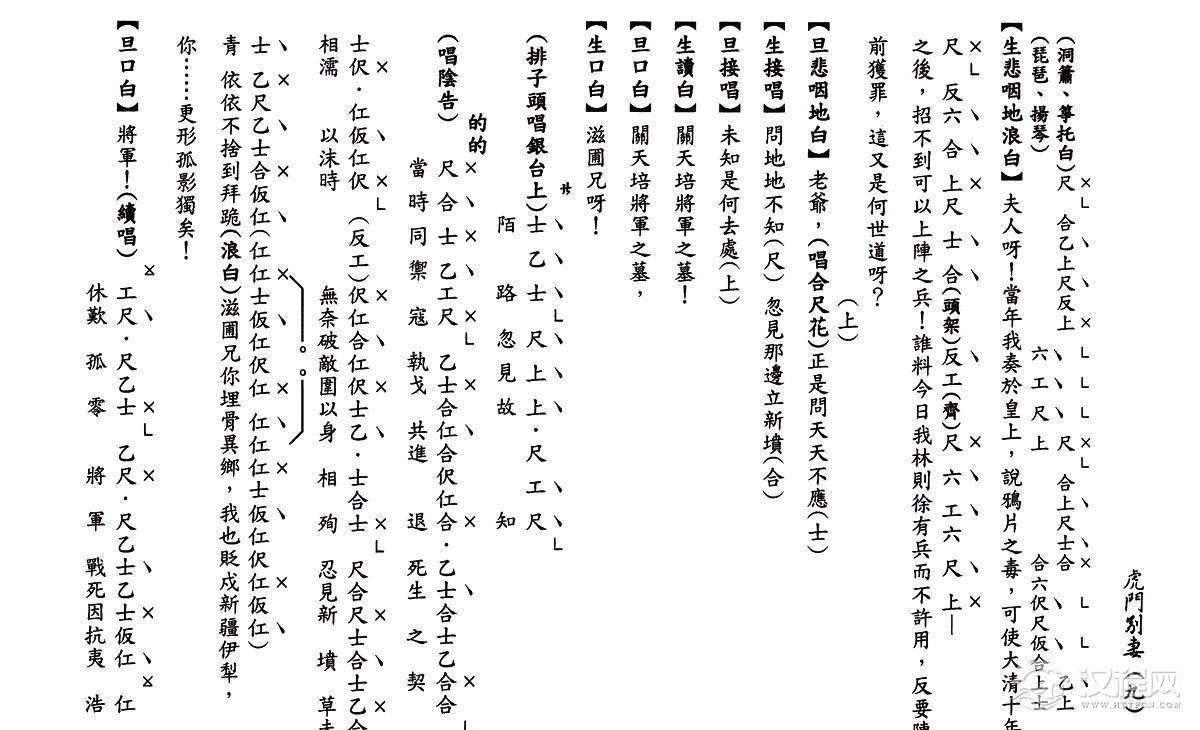 虎門別妻(九)
(洞簫、箏托白)尺 合乙上尺反上 六工尺上 尺 合上尺士合 合六伬尺仮合上士 乙上
(琵琶、揚琴)
【生悲咽地浪白】夫人呀!當年我奏於皇上,說鴉片之毒,可使大清十年
尺 反六合上尺士合(頭架)反工(齊)尺六工六尺上—
之後,招不到可以上陣之兵!誰料今日我林則徐有兵而不許用,反要陣
前獲罪,這又是何世道呀?
(上)
【旦悲咽地白】老爺,(唱合尺花)正是問天天不應(士)
【生接唱】問地地不知(尺)忽見那邊立新墳(合)
【旦接唱】未知是何去處(上)
【生讀白】關天培將軍之墓!
【旦口白】關天培將軍之墓,
【生口白】滋圃兄呀!
(排子頭唱銀台上)士乙士尺上上·尺工尺
陌路忽見故知
的的
(唱陰告)尺合士乙工尺 乙士合仁合伬仁合·乙士合士乙合合
當時同禦寇執戈共進退死生之契
士伬·仁仮仁伬(反工)伬仁合仁伬士乙·士合士 尺合尺士合士乙合
相濡以沫時 無奈破敵圍以身相殉忍見新墳草
士乙尺乙士合仮仁(仁仁士仮仁伬仁 仁仁仁士仮仁伬仁仮仁)
青 依依不捨到拜跪(浪白)滋圃兄你埋骨異鄉,我也貶戍新疆伊犁,
你……更形孤影獨矣!
【旦口白】將軍!(續唱)工尺·尺乙士 乙尺·尺乙士乙士仮仁 仁
休歎孤零將軍戰死因抗夷浩
汉程网
HTTPCN.COM